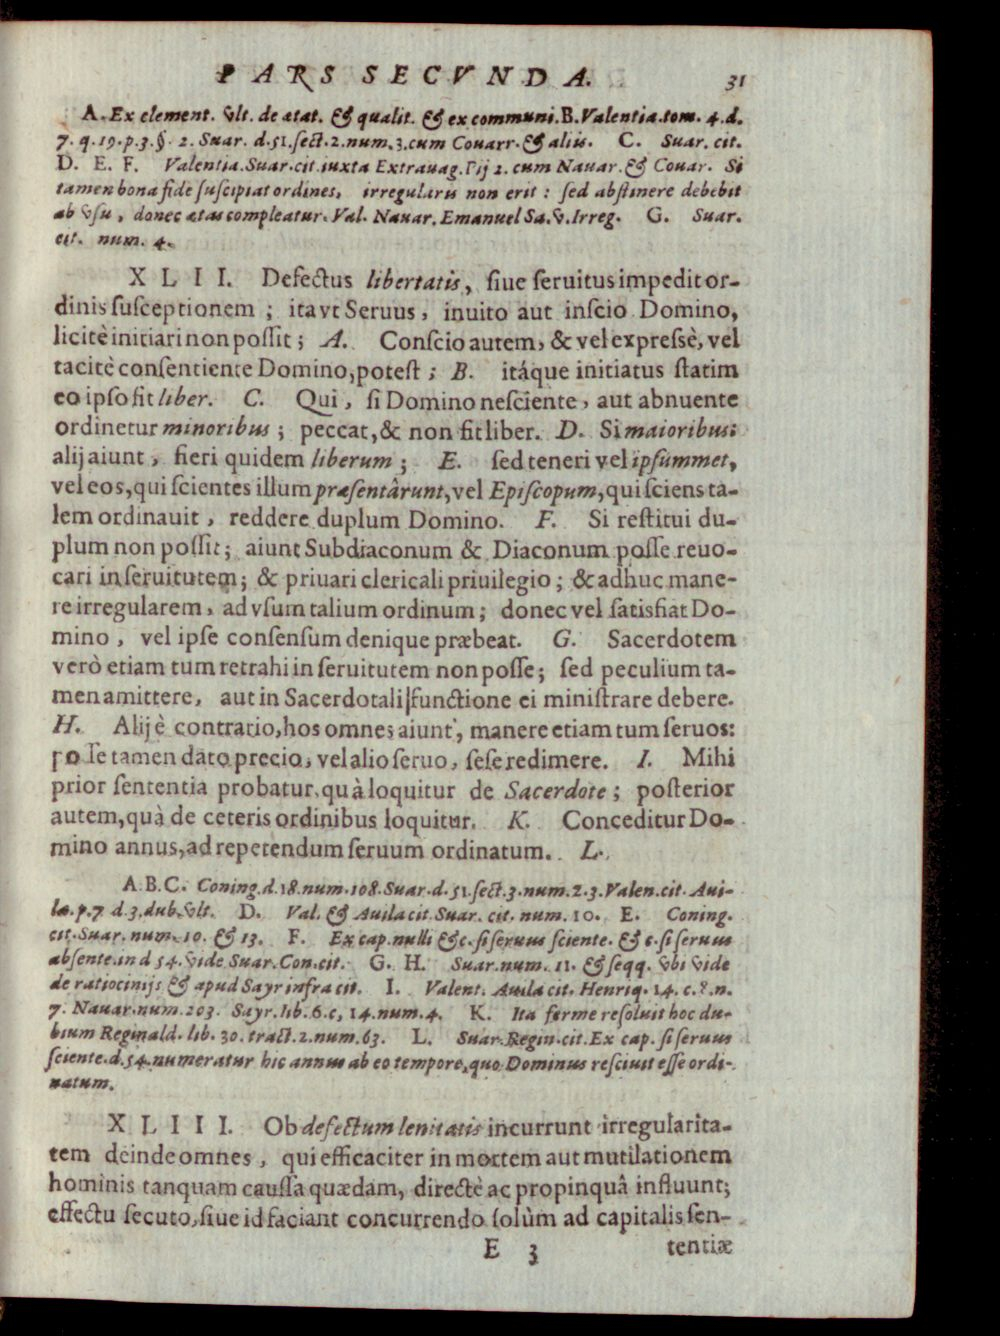 PARS SECVNDA. 31
A. Ex clement. vlt. de ætat. & qualit. & ex communi. B. Valentia. tom. 4. d.
7. q. 19. p. 3. §. 2. Suar. d. 51. sect. 2. num. 3. cum Couarr. & aliis. C. Suar. cit.
D. E. F. Valentia. Suar. cit. iuxta Extrauag. Pij 2. cum Nauar. & Couar. Si
tamen bona fide suscipiat ordines, irregularis non erit: sed abstinere debebit
ab vsu, donec ætas compleatur. Val. Nauar. Emanuel Sa. v. Irreg. G. Suar.
cit. num. 4.
XLII. Defectus libertatis, siue seruitus impedit or-
dinis susceptionem; ita vt Seruus, inuito aut inscio Domino,
licitè initiari non possit; A. Conscio autem, & vel expressè, vel
tacitè consentiente Domino, potest; B. itáque initiatus statim
eo ipso fit liber. C. Qui, si Domino nesciente, aut abnuente
ordinetur minoribus; peccat, & non fit liber. D. Si maioribus:
alij aiunt, fieri quidem liberum; E. sed teneri vel ipsummet,
vel eos, qui scientes illum præsentârunt, vel Episcopum, qui sciens ta-
lem ordinauit, reddere duplum Domino. F. Si restitui du-
plum non possit; aiunt Subdiaconum & Diaconum posse reuo-
cari in seruitutem; & priuari clericali priuilegio; & adhuc mane-
re irregularem, ad vsum talium ordinum; donec vel satisfiat Do-
mino, vel ipse consensum denique præbeat. G. Sacerdotem
verò etiam tum retrahi in seruitutem non posse; sed peculium ta-
men amittere, aut in Sacerdotali functione ei ministrare debere.
H. Alij è contrario, hos omnes aiunt, manere etiam tum seruos:
posse tamen dato precio, vel alio seruo, sese redimere. I. Mihi
prior sententia probatur, quà loquitur de Sacerdote; posterior
autem, quà de ceteris ordinibus loquitur. K. Conceditur Do-
mino annus, ad repetendum seruum ordinatum. L.
A. B. C. Coning. d. 18. num. 108. Suar. d. 51. sect. 3. num. 2. 3. Valen. cit. Aui-
la. p. 7 d. 3. dub. vlt. D. Val. & Auila cit. Suar. cit. num. 10. E. Coning.
cit. Suar. num. 10. & 13. F. Ex cap. nulli &c. si seruus sciente. & c. si seruus
absente. in d 54. vide Suar. Con. cit. G. H. Suar. num. 11. & seqq. vbi vide
de ratiocinijs & apud Sayr infra cit. I. Valent. Auila cit. Henriq. 14. c. 8. n.
7. Nauar. num. 203. Sayr. lib. 6. c, 14. num. 4. K. Ita ferme resoluit hoc du-
bium Reginald. lib. 30. tract. 2. num. 63. L. Suar. Regin. cit. Ex cap. si seruus
sciente. d. 54. numeratur hic annus ab eo tempore, quo Dominus resciuit esse ordi-
natum.
XLIII. Ob defectum lenitatis incurrunt irregularita-
tem deinde omnes, qui efficaciter in mortem aut mutilationem
hominis tanquam caussa quædam, directè ac propinquâ influunt;
effectu secuto, siue id faciant concurrendo solùm ad capitalis sen-
E 3 tentiæ